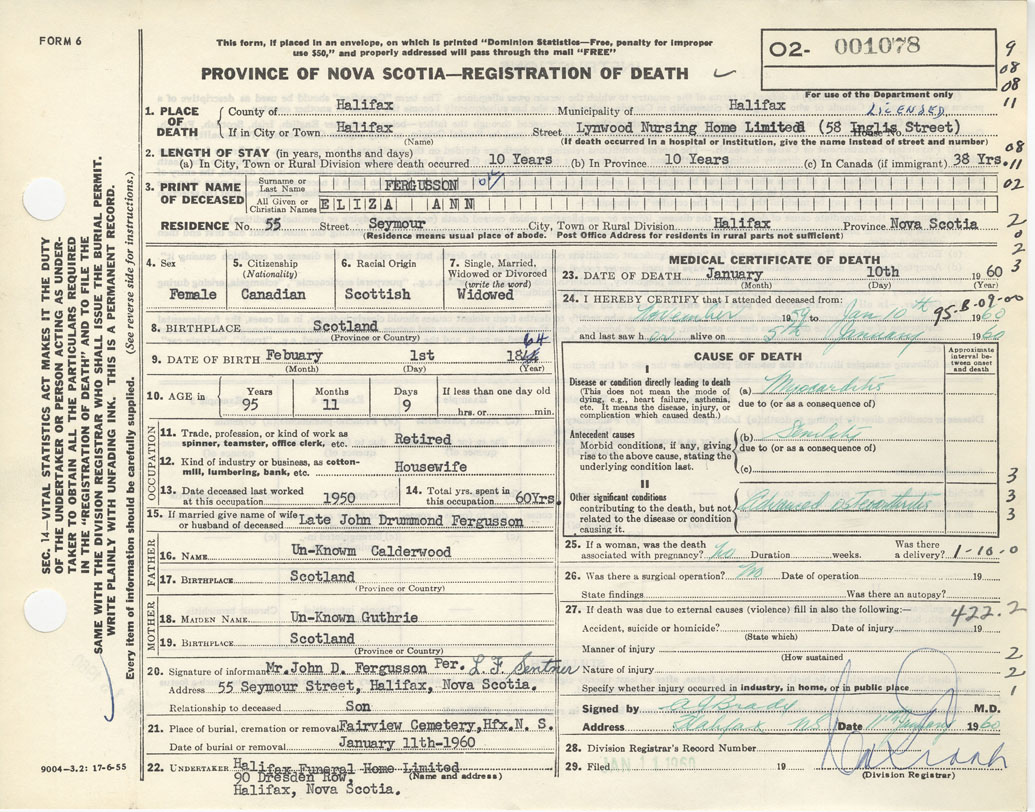 FORM 6
This form, if placed in an envelope, on which is printed "Dominion Statistics—Free, penalty for improper
use $50," and properly addressed will pass through the mail "FREE"
PROVINCE OF NOVA SCOTIA—REGISTRATION OF DEATH
O2- 001078
For use of the Department only
9
08
08
11
1. PLACE OF DEATH
County of Halifax Municipality of Halifax LICENSED
If in City or Town Halifax Street Lynwood Nursing Home Limited (58 Inglis Street)
(Name) House No. (If death occurred in a hospital or institution, give the name instead of street and number)
2. LENGTH OF STAY (in years, months and days)
(a) In City, Town or Rural Division where death occurred 10 Years (b) In Province 10 Years (c) In Canada (if immigrant) 38 Yrs.
08
11
3. PRINT NAME OF DECEASED
Surname or Last Name FERGUSSON
02
All Given or Christian Names ELIZA ANN
RESIDENCE No. 55 Street Seymour City, Town or Rural Division Halifax Province Nova Scotia
(Residence means usual place of abode. Post Office Address for residents in rural parts not sufficient)
2
0
2
3
4. Sex
Female
5. Citizenship
(Nationality)
Canadian
6. Racial Origin
Scottish
7. Single, Married,
Widowed or Divorced
(write the word)
Widowed
8. BIRTHPLACE Scotland
(Province or Country)
9. DATE OF BIRTH Febuary 1st 1864
(Month) (Day) (Year)
10. AGE in
Years 95
Months 11
Days 9
If less than one day old
hrs. or min.
OCCUPATION
11. Trade, profession, or kind of work as
spinner, teamster, office clerk, etc. Retired
12. Kind of industry or business, as cotton-
mill, lumbering, bank, etc. Housewife
13. Date deceased last worked
at this occupation 1950
14. Total yrs. spent in
this occupation 60Yrs.
15. If married give name of wife
or husband of deceased Late John Drummond Fergusson
FATHER
16. NAME Un-Known Calderwood
17. BIRTHPLACE Scotland
(Province or Country)
MOTHER
18. MAIDEN NAME Un-Known Guthrie
19. BIRTHPLACE Scotland
(Province or Country)
20. Signature of informant Mr.John D. Fergusson Per. L. F. Sentner
Address 55 Seymour Street, Halifax, Nova Scotia.
Relationship to deceased Son
21. Place of burial, cremation or removal Fairview Cemetery,Hfx.N. S.
Date of burial or removal January 11th-1960
22. UNDERTAKER Halifax Funeral Home Limited
90 Dresden Row, (Name and address)
Halifax, Nova Scotia.
MEDICAL CERTIFICATE OF DEATH
23. DATE OF DEATH January 10th 1960
(Month) (Day) (Year)
24. I HEREBY CERTIFY that I attended deceased from:
November 1959 to Jan 10th 1960
95-B-09-00
and last saw her alive on 5th January 1960
CAUSE OF DEATH
Approximate
interval be-
tween onset
and death
I
Disease or condition directly leading to death
(This does not mean the mode of
dying, e.g., heart failure, asthenia,
etc. It means the disease, injury, or
complication which caused death.)
(a) Myocarditis
due to (or as a consequence of)
Antecedent causes
Morbid conditions, if any, giving
rise to the above cause, stating the
underlying condition last.
(b) Senility
due to (or as a consequence of)
(c)
II
Other significant conditions
contributing to the death, but not
related to the disease or condition
causing it.
Advanced osteoarthritis
3
3
3
25. If a woman, was the death
associated with pregnancy? No Duration weeks. Was there
a delivery? 1-10-0
26. Was there a surgical operation? no Date of operation 19
State findings Was there an autopsy?
27. If death was due to external causes (violence) fill in also the following:—
422.2
Accident, suicide or homicide? Date of injury 19
(State which)
Manner of injury
(How sustained
2
Nature of injury
2
Specify whether injury occurred in industry, in home, or in public place
1
Signed by A J Brady M.D.
Address Halifax N S Date 11th January 1960
28. Division Registrar's Record Number
29. Filed JAN 11 1960 19
(Division Registrar)
SEC. 14—VITAL STATISTICS ACT MAKES IT THE DUTY
OF THE UNDERTAKER OR PERSON ACTING AS UNDER-
TAKER TO OBTAIN ALL THE PARTICULARS REQUIRED
IN THE "REGISTRATION OF DEATH" AND FILE THE
SAME WITH THE DIVISION REGISTRAR WHO SHALL ISSUE THE BURIAL PERMIT.
WRITE PLAINLY WITH UNFADING INK. THIS IS A PERMANENT RECORD.
Every item of information should be carefully supplied. (See reverse side for instructions.)
9004-3.2: 17-6-55